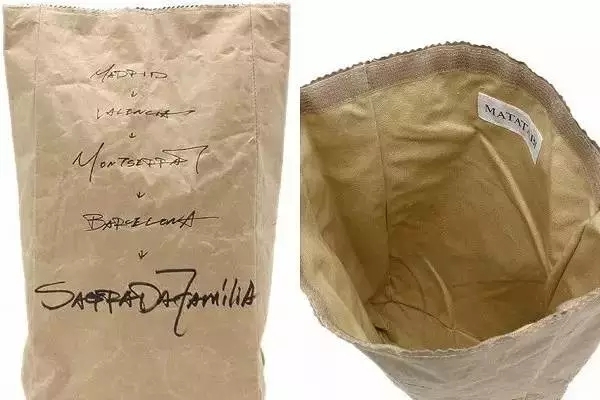 MADRID
↓
VALENCIA
↓
MONTSERRAT
↓
BARCELONA
↓
SAGRADA FAMÍLIA